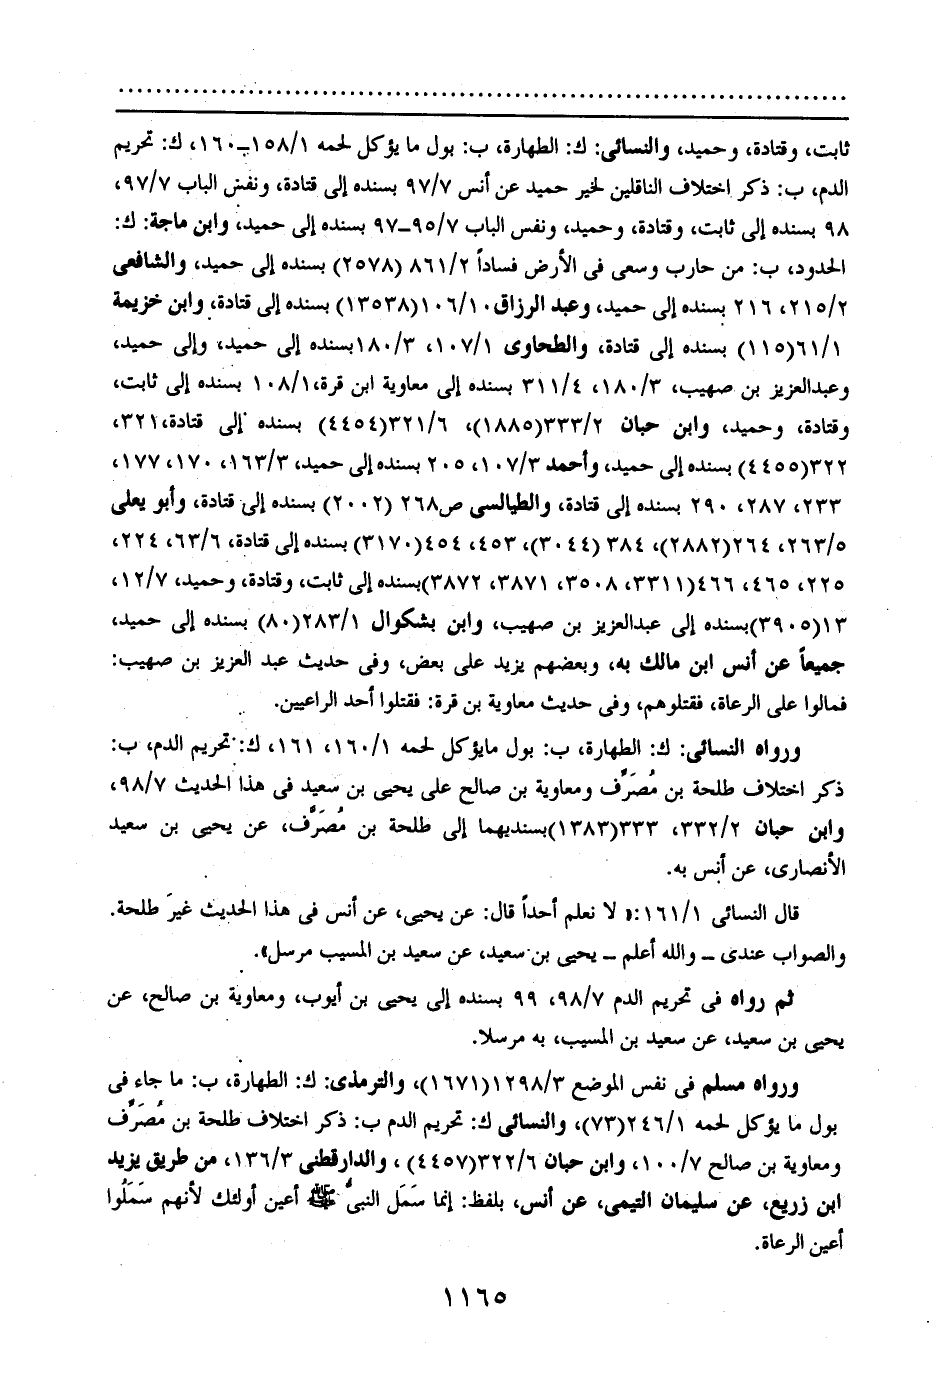 ثابت، وقتادة، وحميد، والنسائى: ك: الطهارة، ب: بول ما يؤكل لحمه ١٥٨/١ــ١٦٠، ك: تحريم
الدم، ب: ذكر اختلاف الناقلين لخبر حميد عن أنس ٩٧/٧ بسنده إلى قتادة، ونفس الباب ٩٧/٧،
٩٨ بسنده إلى ثابت، وقتادة، وحميد، ونفس الباب ٩٥/٧ــ٩٧ بسنده إلى حميد، وابن ماجة: ك:
الحدود، ب: من حارب وسعى فى الأرض فساداً ٨٦١/٢ (٢٥٧٨) بسنده إلى حميد، والشافعى
٢١٥/٢، ٢١٦ بسنده إلى حميد، وعبد الرزاق ١٠٦/١٠(١٣٥٣٨) بسنده إلى قتادة، وابن خزيمة
٦١/١(١١٥) بسنده إلى قتادة، والطحاوى ١٠٧/١، ١٨٠/٣بسنده إلى حميد، وإلى حميد،
وعبدالعزيز بن صهيب، ١٨٠/٣، ٣١١/٤ بسنده إلى معاوية ابن قرة،١٠٨/١ بسنده إلى ثابت،
وقتادة، وحميد، وابن حبان ٣٣٣/٢(١٨٨٥)، ٣٢١/٦(٤٤٥٤) بسنده إلى قتادة،٣٢١،
٣٢٢(٤٤٥٥) بسنده إلى حميد، وأحمد ١٠٧/٣، ٢٠٥ بسنده إلى حميد، ١٦٣/٣، ١٧٠، ١٧٧،
٢٣٣، ٢٨٧، ٢٩٠ بسنده إلى قتادة، والطيالسى ص٢٦٨ (٢٠٠٢) بسنده إلى قتادة، وأبو يعلى
٢٦٣/٥، ٢٦٤(٢٨٨٢)، ٣٨٤ (٣٠٤٤)، ٤٥٣، ٤٥٤(٣١٧٠) بسنده إلى قتادة، ٦٣/٦، ٢٢٤،
٢٢٥، ٤٦٥، ٤٦٦(٣٣١١، ٣٥٠٨، ٣٨٧١، ٣٨٧٢)بسنده إلى ثابت، وقتادة، وحميد، ١٢/٧،
١٣(٣٩٠٥)بسنده إلى عبدالعزيز بن صهيب، وابن بشكوال ٢٨٣/١(٨٠) بسنده إلى حميد،
جميعاً عن أنس ابن مالك به، وبعضهم يزيد على بعض، وفى حديث عبد العزيز بن صهيب:
فمالوا على الرعاة، فقتلوهم، وفى حديث معاوية بن قرة: فقتلوا أحد الراعيين.
ورواه النسائى: ك: الطهارة، ب: بول مايؤكل لحمه ١٦٠/١، ١٦١، ك: تحريم الدم، ب:
ذكر اختلاف طلحة بن مُصَرِّف ومعاوية بن صالح على يحيى بن سعيد فى هذا الحديث ٩٨/٧،
وابن حبان ٣٣٢/٢، ٣٣٣(١٣٨٣)بسنديهما إلى طلحة بن مُصَرِّف، عن يحيى بن سعيد
الأنصارى، عن أنس به.
قال النسائى ١٦١/١:« لا نعلم أحداً قال: عن يحيى، عن أنس فى هذا الحديث غيرَ طلحة.
والصواب عندى ــ والله أعلم ــ يحيى بن سعيد، عن سعيد بن المسيب مرسل».
ثم رواه فى تحريم الدم ٩٨/٧، ٩٩ بسنده إلى يحيى بن أيوب، ومعاوية بن صالح، عن
يحيى بن سعيد، عن سعيد بن المسيب، به مرسلا.
ورواه مسلم فى نفس الموضع ١٢٩٨/٣(١٦٧١)، والترمذى: ك: الطهارة، ب: ما جاء فى
بول ما يؤكل لحمه ٢٤٦/١(٧٣)، والنسائى ك: تحريم الدم ب: ذكر اختلاف طلحة بن مُصَرِّف
ومعاوية بن صالح ١٠٠/٧، وابن حبان ٣٢٢/٦(٤٤٥٧) ، والدارقطنى ١٣٦/٣، من طريق يزيد
ابن زريع، عن سليمان التيمى، عن أنس، بلفظ: إنما سَمَل النبىُّ ﷺ أعين أولئك لأنهم سَمَلُوا
أعين الرعاة.
١١٦٥